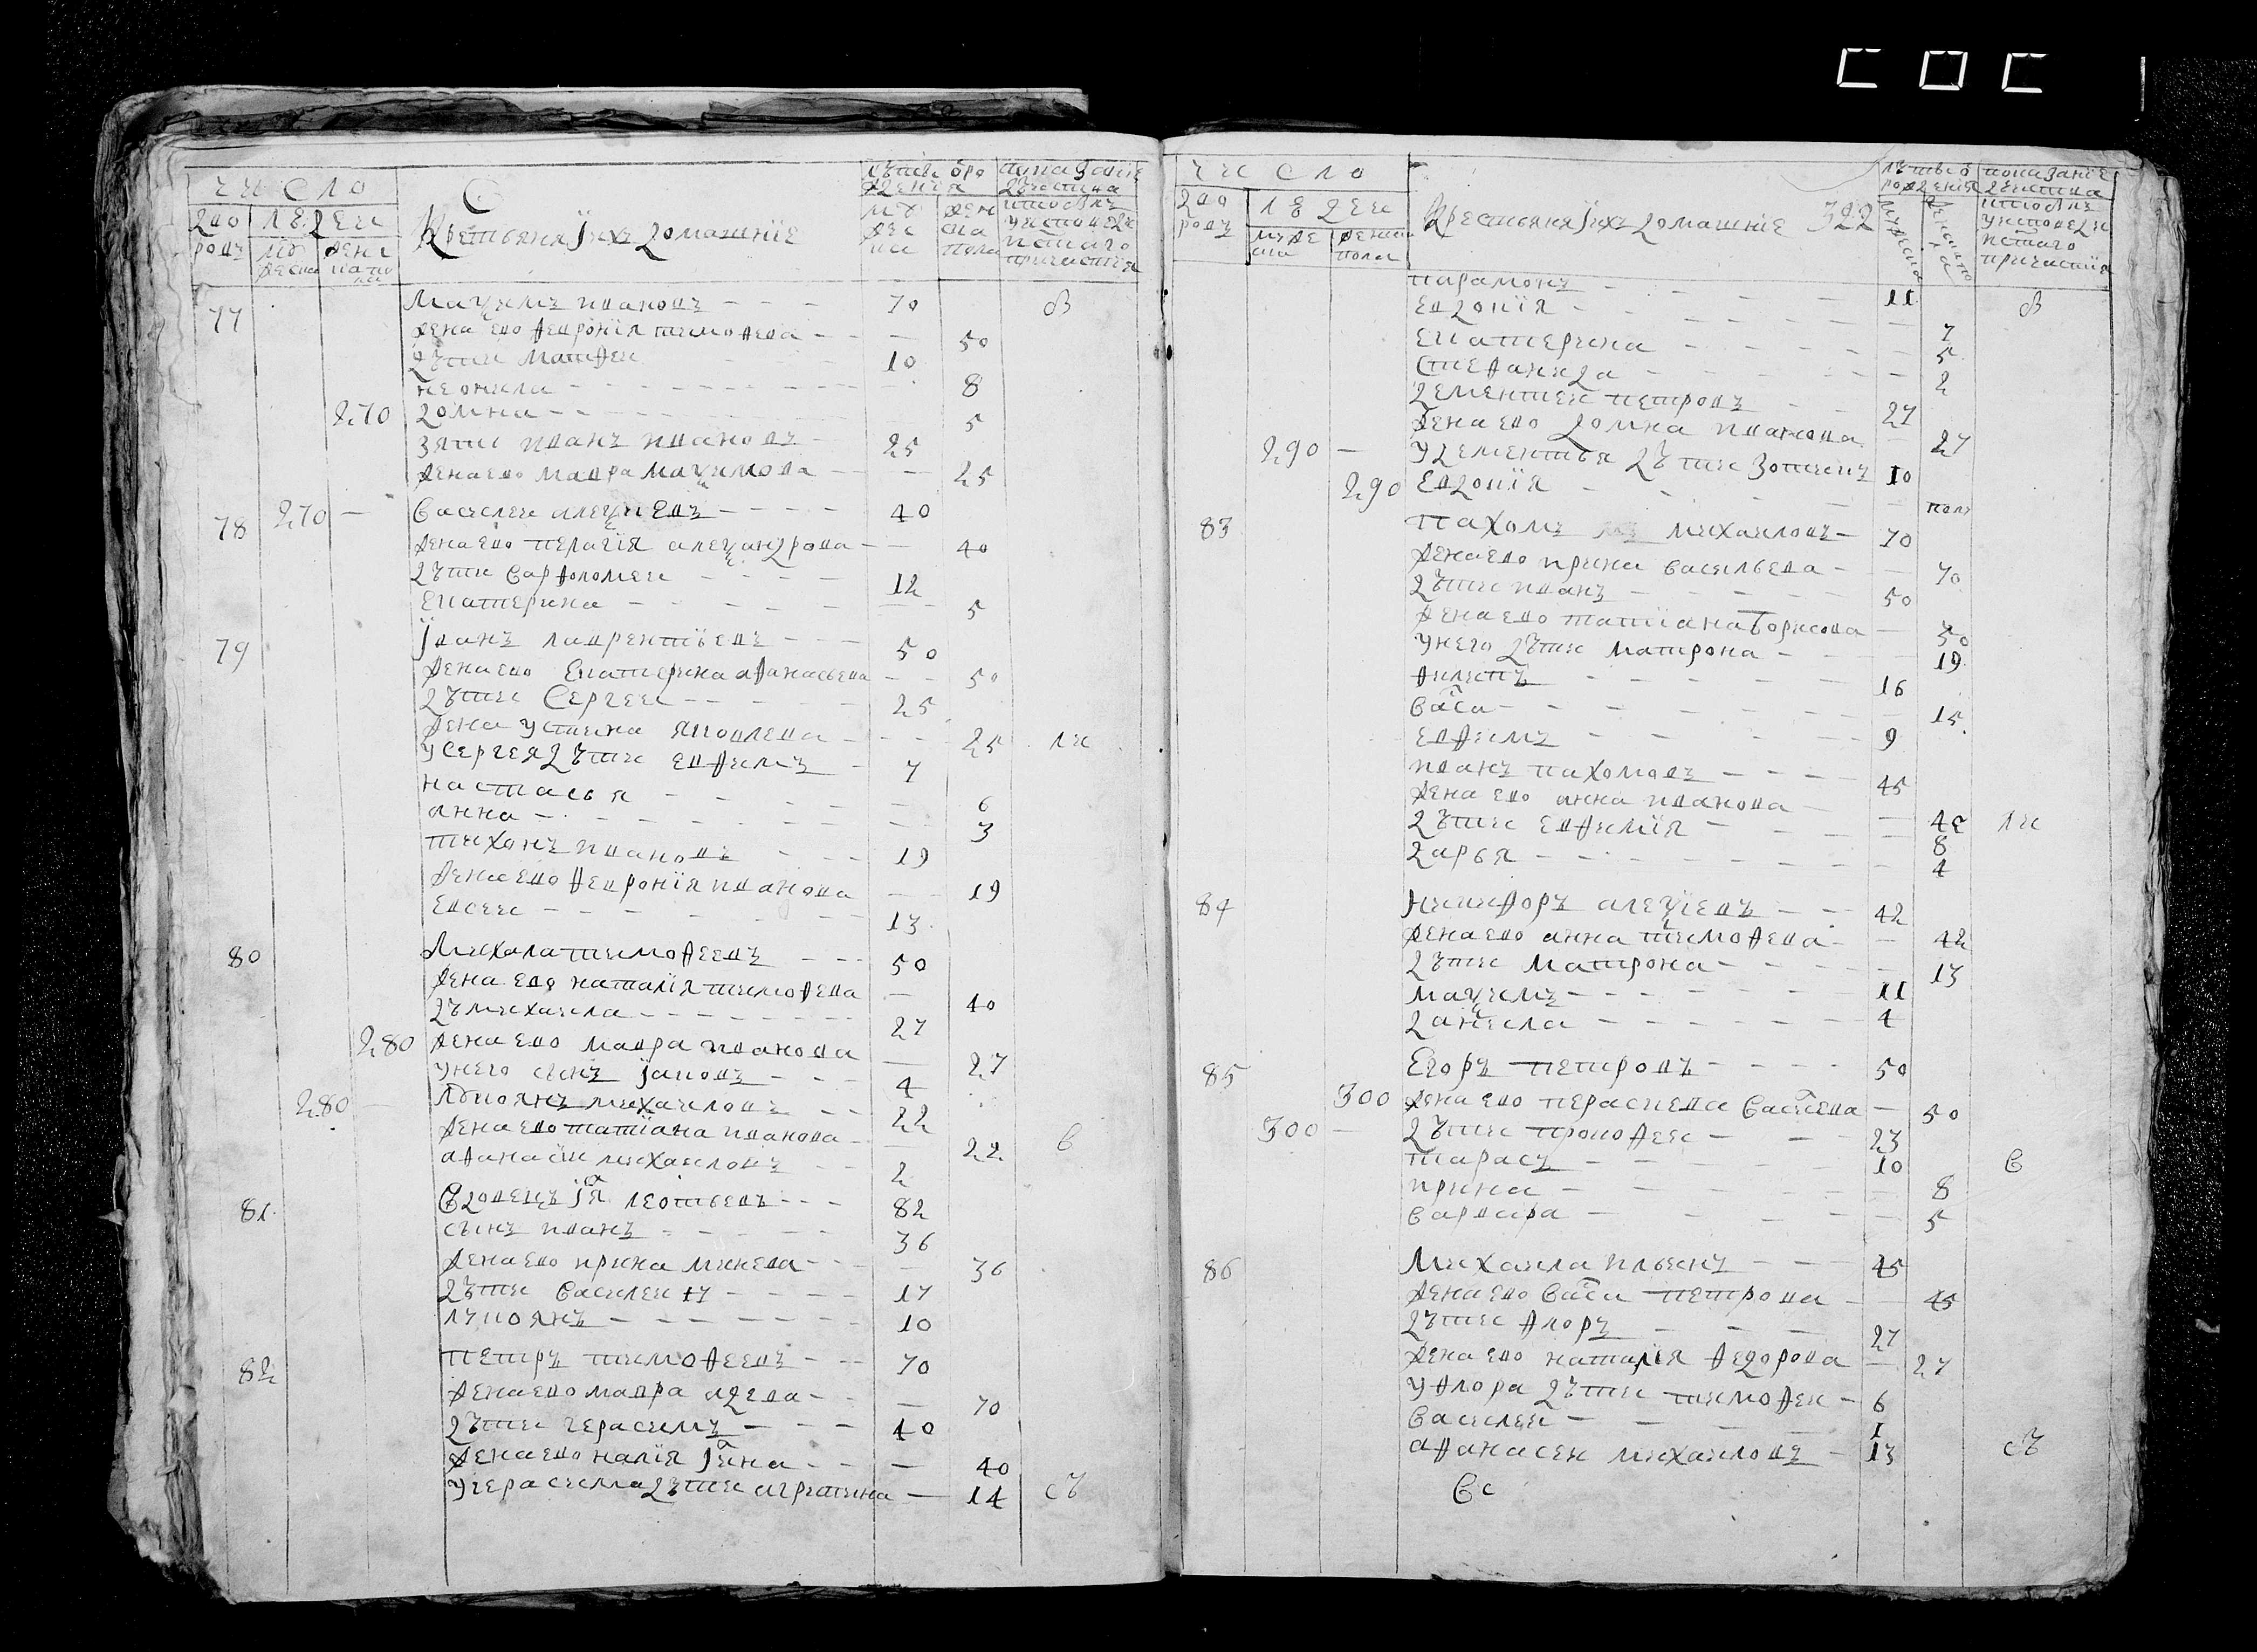 число
дво
ровъ
людеи
муж
еска
женс
ка по
ла
Крестьяня їихъ домашнїе
лѣта о ро
жденїя
муж
ес
ка
жен
ска
пола
показанїе
действа
кто былъ
у исповеди
и с͠таго
причастїя
77 Маѯимъ ивановъ - - - 70 в
жена ево февронїя тимофева - - 50
дѣти Матфеи 10
неонила - - - 8
270 домна - - - 5
зять иванъ ивановъ - 25
жена ево мавра маѯимова - - 25
78 270 - василеи алеѯиевъ - - - 40
жена ево пелагїя алеѯандрова - - 40
дѣти варфоломеи - - - 12
екатерина - - - 5
79 їванъ лаврентїевъ - - - 50
жена ево Екатерина афанасьева - - 50
дѣти Сергеи - - - 25
жена устина яковлева - - - 25 ли
у сергея дѣти евфимъ - 7
настасья - - - 6
анна - - - 3
тихонъ ивановъ - - - 19
жена ево февронїя иванова - 19
евсеи - - - 13
80 Михаила тимофеевъ - - - 50
жена ево наталїя тимофева - 40
дѣ михаила - - - 27
280 жена ево мавра иванова - 27
у него сынъ їаковъ - - - 4
280 - лукоянъ михаиловъ - - 22
жена ево татїана иванова - - 22 в
афанасїи михаиловъ - - 2
81 Вдовецъ їя леотьевъ - - - 82
сынъ иванъ - - - 36
жена ево ирина минева - - - 36
дѣти василеи 17 - - - 17
лукоянъ - - - 10
82 петръ тимофеевъ - - - 70
жена ево мавра авдева - - - 70
дѣти герасимъ - - - 40
жена ево налїя - - - 40
у герасима дѣти агрипина - 14 сѣ
число
дво
ровъ
людеи
муже
ска
женска
пола
Крестьяня їихъ домашнїе 322
лѣта о
рожденїя
мужеска
женска по
ла
показанїе
действа
кто былъ
у исповеди
и с͠таго
причастїя
парамонъ - - - 11 в
евдокїя - - - 7
екатерина - - - 5
стефанида - - - 2
дементеи петровъ - - 27
жена ево домна иванова - 27
290 - у дементья дѣти зотикъ 10
290 евдокїя - - - полъ
83 пахомъ михаиловъ - 70
жена ево ирина васильева - - 70
дѣти иванъ - - - 50
жена ево татїана борисова - 50
у него дѣти матрона - - - 19
филипъ - - - 16
васа - - - 15
евфимъ - - - 9
иванъ пахомовъ - - - 45
жена ево анна иванова - - 42 ли
дѣти евфимїя - - - 8
дарья - - - 4
84 никифоръ алеѯїевъ - - 42
жена ево анна тимофева - - 42
дѣти матрона - - - 13
маѯимъ - - - 11
данила - - - 4
85 Егоръ петровъ - - - 50
300 жена ево пераскева васиева - 50
300 - дѣти прокофеи - - - 23
тарасъ - - - 10 в
ирина - - - 8
варвара - - - 5
86 Михаила ильинъ - - - 45
жена ево васа петрова - 45
дѣти флоръ - - - 27
жена ево наталїя федорова - 27
у флора дѣти тимофеи - 6
василеи - - - 1
афанасеи михаиловъ - 13 сѣ
Вс